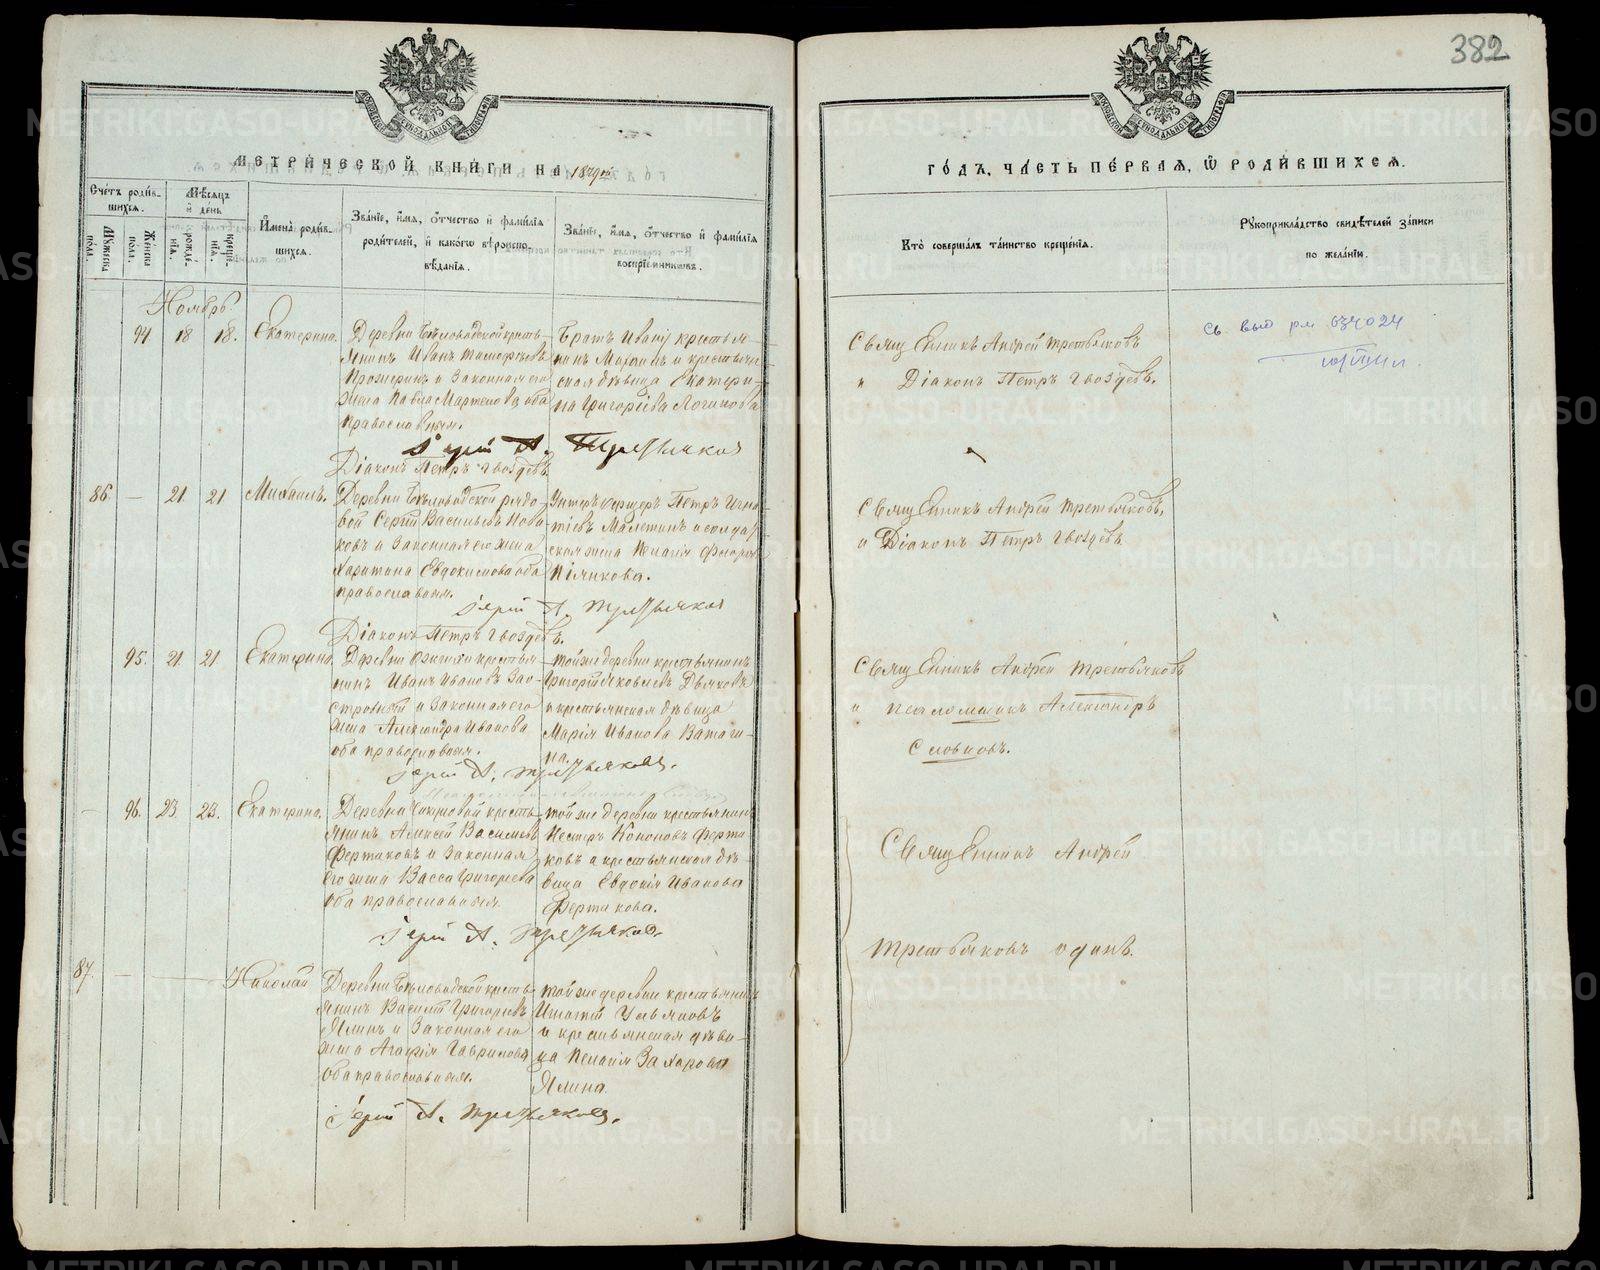 382
МЕТРИЧЕСКОЙ КНИГИ НА 1879й
Счетъ родив-
шихся.
Мужеска
пола.
Женска
пола.
Мѣсяцъ
и день
рожде-
нія.
креще-
нія.
Имена родив-
шихся.
Званіе, имя, отчество и фамилія
родителей, и какого вѣроиспо-
вѣданія.
Званіе, имя, отчество и фамилія
воспріемниковъ.
Ноябрь
94 18 18. Екатерина.
Деревни Бѣловодской кресть-
янинъ Иванъ Тимофеевъ
и законная его
жена Павла Мартемова оба
православныя.
Братъ Ивану крестья-
нинъ Маркинъ и крестьян-
ская дѣвица Екатери-
на Григорьева Логинова
Іерей А. Третьяковъ
Діаконъ Петръ Гвоздевъ.
86. — 21. 21 Михаилъ.
Деревни Бѣловодской рядо-
вой Сергій Васильевъ Нова-
ковъ и законная его жена
Харитина Евдокимова оба
православныя.
Унтеръ офицеръ Петръ Игна-
тіевъ Малетинъ и солдат-
ская жена Пелагія
Пьянкова.
Іерей А. Третьяковъ
Діаконъ Петръ Гвоздевъ.
95. 21. 21 Екатерина.
Деревни крестья-
нинъ Иванъ Ивановъ Зао-
стровный и законная его
жена Александра Иванова
оба православныя.
той же деревни крестьянинъ
Григорій Яковлевъ Дьяковъ
и крестьянская дѣвица
Марія Иванова Ватаги-
на.
Іерей А. Третьяковъ.
— 96. 23. 23. Екатерина.
Деревни кресть-
янинъ Алексей Васильевъ
Фертиковъ и законная
его жена Васса Григорьева
оба православныя.
той же деревни крестьянинъ
Нестеръ Кононовъ Ферти-
ковъ и крестьянская дѣ-
вица Евдокія Иванова
Фертикова.
Іерей А. Третьяковъ.
87. — Николай
Деревни Бѣловодской кресть-
янинъ Василій Григорьевъ
Ялинъ и законная его
жена Агафія Гаврилова
оба православныя.
той же деревни крестьянинъ
Игнатій Ульяновъ
и крестьянская дѣви-
ца Пелагія Захарова
Ялина.
Іерей А. Третьяковъ.
ГОДЪ, ЧАСТЬ ПЕРВАЯ, Ѿ РОДИВШИХСЯ.
Кто совершалъ таинство крещенія.
Рукоприкладство свидѣтелей записи
по желанію.
Священникъ Андрей Третьяковъ
и Діаконъ Петръ Гвоздевъ.
Св выд рм 634024
Священникъ Андрей Третьяковъ,
и Діаконъ Петръ Гвоздевъ
Священникъ Андрей Третьяковъ
и псаломщикъ Александръ
Словцовъ.
Священникъ Андрей
Третьяковъ одинъ.
METRIKI.GASO-URAL.RU